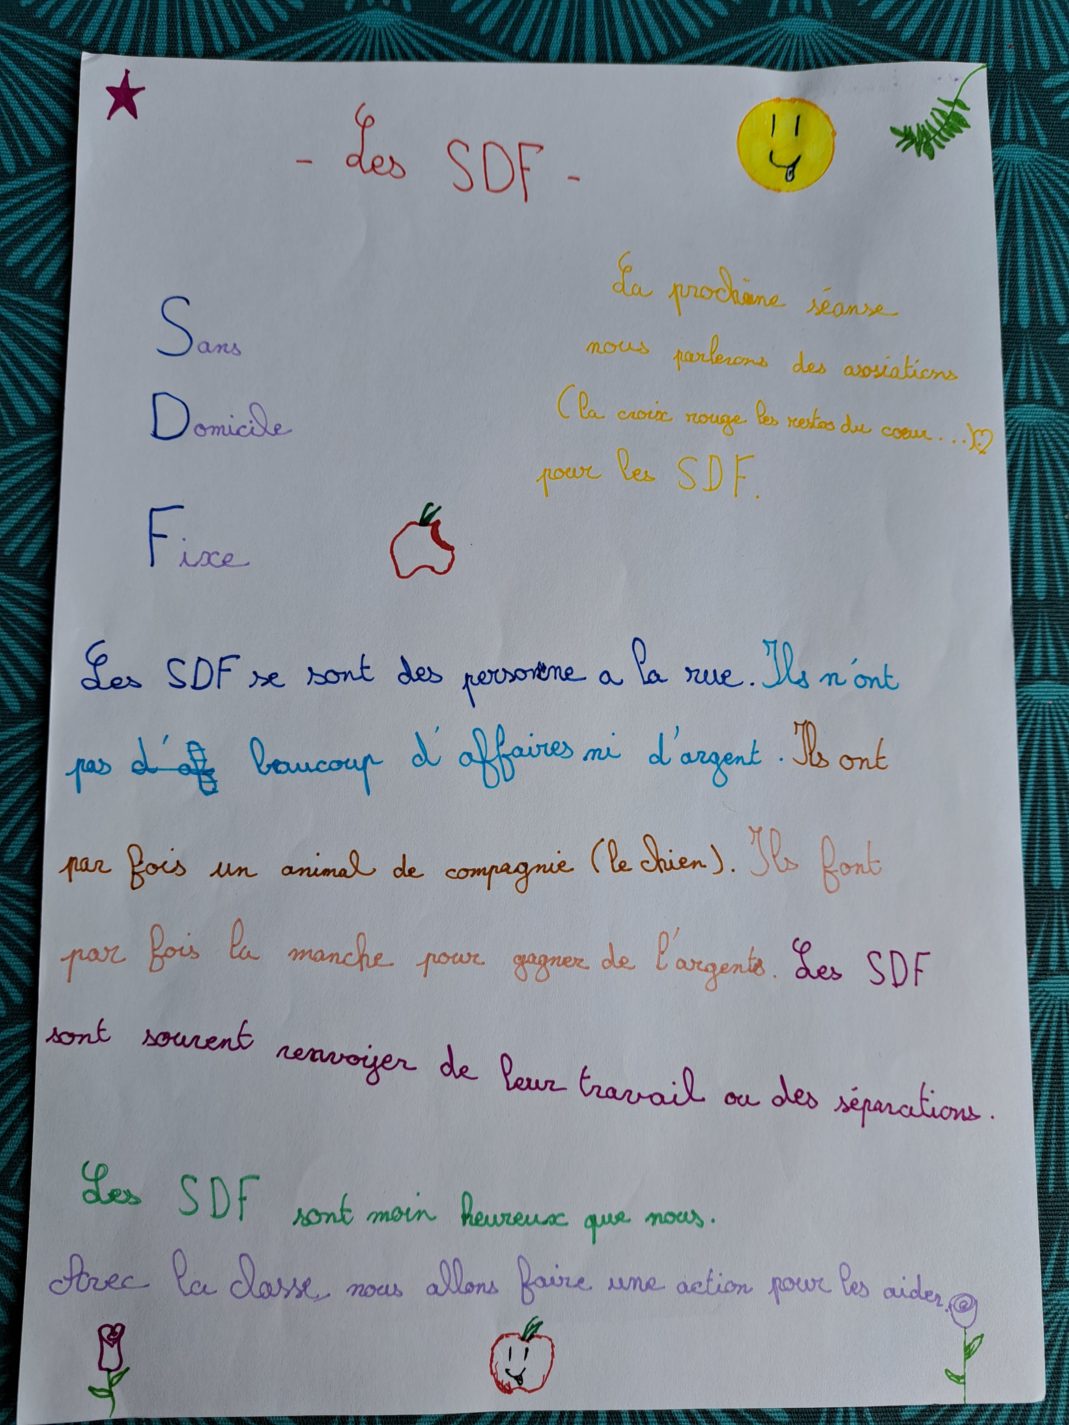 - Les SDF -
La prochène séanse
nous parlerons des asosiations
(la croix rouge les restos du cœur...)
pour les SDF.
Sans
Domicile
Fixe
Les SDF se sont des personne a la rue. Ils n'ont
pas d'aff beaucoup d'affaires ni d'argent. Ils ont
par fois un animal de compagnie (le chien). Ils font
par fois la manche pour gagner de l'argents. Les SDF
sont souvent renvoyer de leur travail ou des séparations.
Les SDF sont moin heureux que nous.
Avec la classe, nous allons faire une action pour les aider.